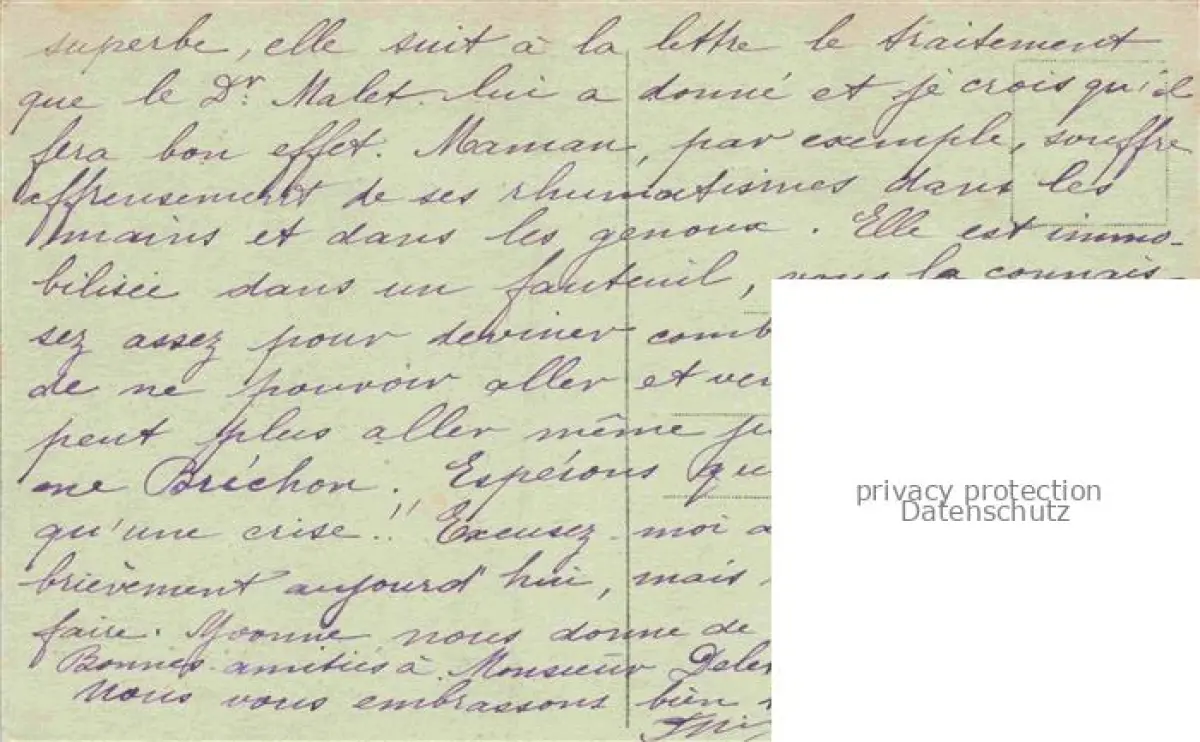 superbe, elle suit à la lettre le traitement
que le Dr. Malet lui a donné et je crois qu'il
fera bon effet. Maman, par exemple, souffre
affreusement de ses rhumatismes dans les
mains et dans les genoux. Elle est immo-
bilisée dans un fauteuil, vous la connais-
sez assez pour deviner comb
de ne pouvoir aller et ven
peut plus aller même ju
me Bréchon. Espérons qu
qu'une crise!! Excusez-moi
brièvement aujourd'hui, mais
faire. Yvonne nous donne de
Bonnes amitiés à Monsieur Deler
Nous vous embrassons bien
privacy protection
Datenschutz